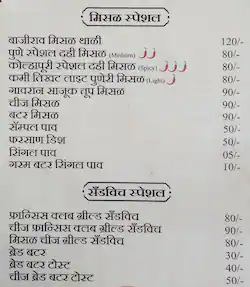 मिसळ स्पेशल
बाजीराव मिसळ थाळी 120/-
पुणे स्पेशल दही मिसळ (Medium) 80/-
कोल्हापुरी स्पेशल दही मिसळ (Spicy) 80/-
कमी तिखट लाइट पुणेरी मिसळ (Light) 80/-
गावरान साजूक तूप मिसळ 90/-
चीज मिसळ 90/-
बटर मिसळ 90/-
सॅम्पल पाव 50/-
फरसाण डिश 50/-
सिंगल पाव 05/-
गरम बटर सिंगल पाव 10/-
सँडविच स्पेशल
फ्रान्सिस क्लब ग्रील्ड सँडविच 80/-
चीज फ्रान्सिस क्लब ग्रील्ड सँडविच 90/-
मिसळ चीज ग्रील्ड सँडविच 80/-
ब्रेड बटर 30/-
ब्रेड बटर टोस्ट 40/-
चीज ब्रेड बटर टोस्ट 50/-